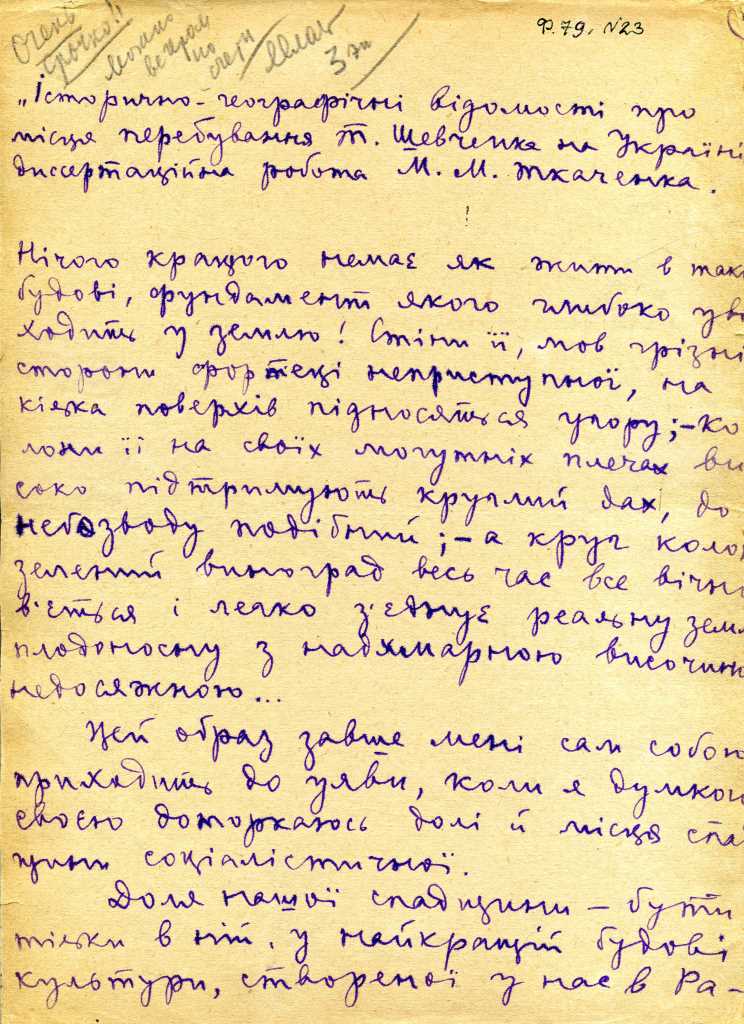 Очень
срочно!!
Можно
по
счету
3 эк
Ф. 79, №23
„Історично-географічні відомості про
місця перебування Т. Шевченка на Україні
диссертаційна робота М. М. Ткаченка.
Нічого кращого немає як жити в так
будові, фундамент якого глибоко ухо
ходить у землю! Стіни її, мов грізні
сторони фортеці неприступної, на
кілька поверхів підносяться угору;-ко
лони її на своїх могутніх плечах ви
соко підтримують круглий дах, до
небозводу подібний;-а круг коло
зелений виноград весь час все вічно
в'ється і легко з'єднує реальну земл
плодоносну з надхмарною височино
недосяжною...
Цей образ завше мені сам собою
приходить до уяви, коли я думкою
своєю доторкаюсь долі й місця спа
щини соціалістичної.
Доля нашої спадщини - бути
тільки в ній, у найкращій будові
культури, створеної у нас в Ра-